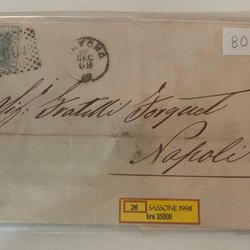 80
DEC
68
Sigi. Fratelli Forquet
Napoli
26 SASSONE 1998
lire 35000